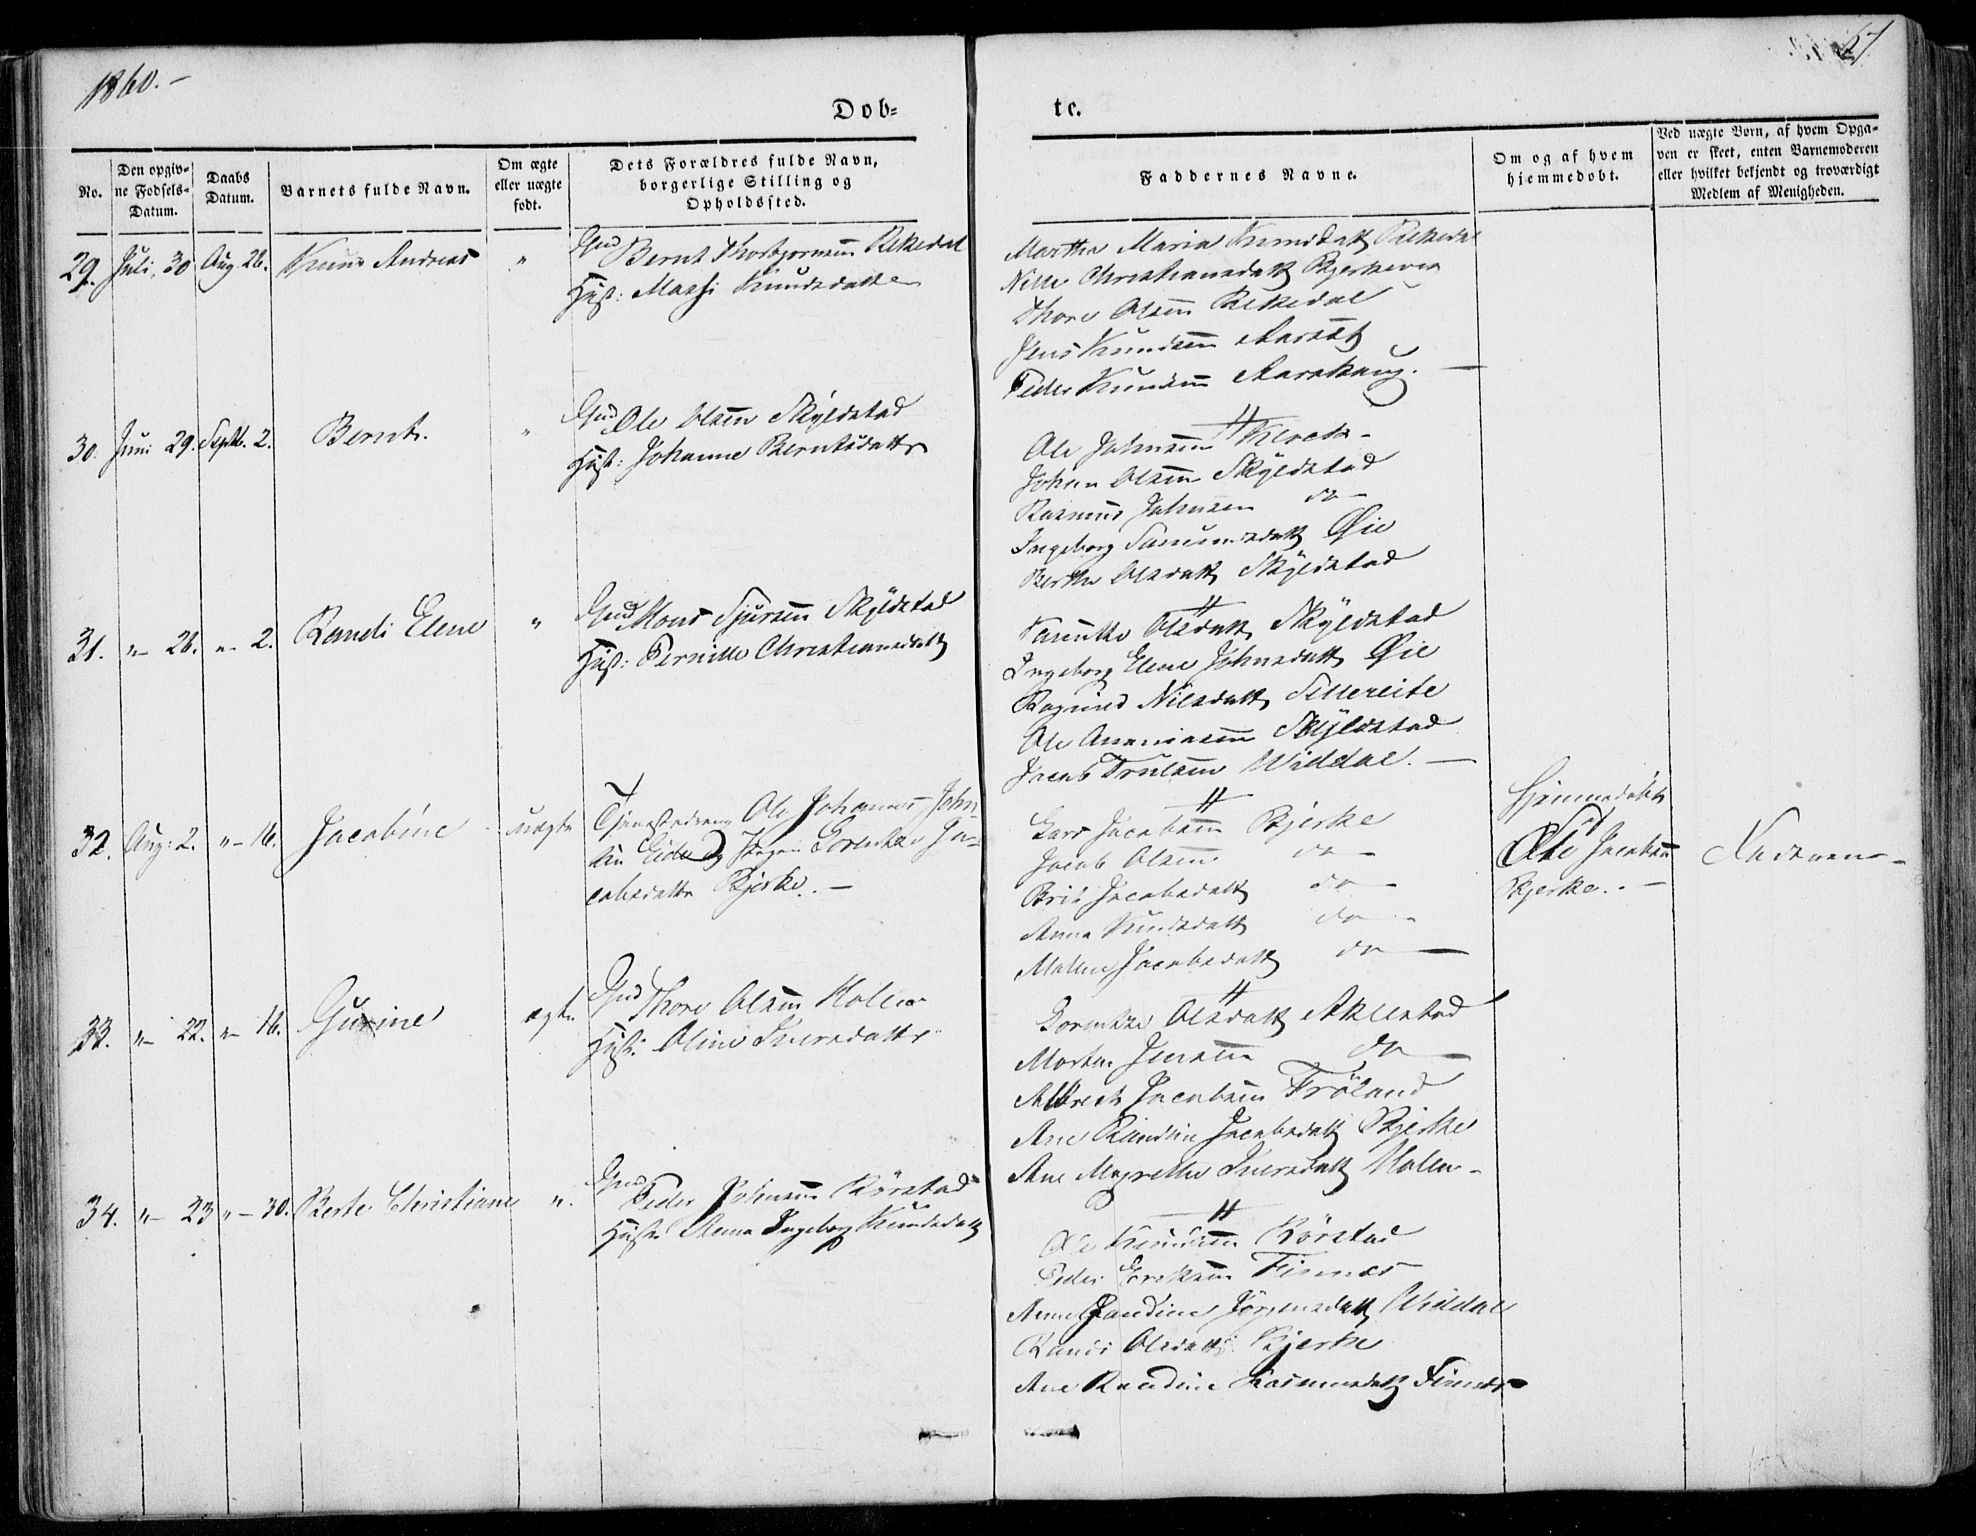 1860.-
57
Døb-
te.
No.
Den opgiv-
ne Fødsels-
Datum.
Daabs
Datum.
Barnets fulde Navn.
Om ægte
eller uægte
født.
Dets Forældres fulde Navn,
borgerlige Stilling og
Opholdssted.
Faddernes Navne.
Om og af hvem
hjemmedøbt.
Ved uægte Børn, af hvem Opga-
ven er skeet, enten Barnemoderen
eller hvilket bekjendt og troværdigt
Medlem af Menigheden.
29. Juli. 30 Aug. 26. Knut Andreas "
Gmd Bernt Thorbjørnsen Rekedal
Hust: Massi Knudsdatter
Marthe Maria Knudsdatt Rekedal
Nille Christiansdatt Bjerkevig
Thore Olsen Rekedal
Jens Knudsen Aarsæt
Peder Knudsen Aarskaug. —
30. Juni 29. Septb. 2. Bernt. "
Gmd Ole Olsen Skÿldstad
Hust: Johanne Berntsdatter
Ole Johnsen Klock -
Johan Olsen Skÿldstad
Rasmus Johnsen do -
Ingeborg Samuelsdatt Øie
Berthe Olsdatt Skÿldstad
31. "- 26. "- 2. Randi Elene "
Gmd Mons Sjursen Skÿldstad
Hust: Pernille Christiansdatt
Olsdatt Skÿldstad
Ingeborg Elene Johnsdatt Øie
Ragnild Nilsdatt Sellereite
Ole Ananiasen Skÿldstad
Jacob Trulsen Widdal. —
32. Aug: 2. "- 16. Jacobine uægte
Tjenestedreng Ole Johannes John-
sen Eide og Pigen Gorentze Ja-
cobsdatter Bjerke. —
Lars Jacobsen Bjerke
Jacob Olsen do -
Brit Jacobsdatt do -
Anna Knudsdatt do -
Malene Jacobsdatt do —
Hjemmedøbt
Ole Jacobsen
Bjerke. . —
Faderen -
33. "- 22. "- 16. Gurine ægte
Gmd Thore Olsen Holen
Hust: Oline Iversdatter
Gorentze Olsdatt Aklestad
Morten Jensen do —
Albrect Jacobsen Frøland
Ane Randine Jacobsdatt Bjerke
Ane Magrethe Iversdatt Holen -
34. "- 23 "- 30. Berte Christiane ".
Gmd Peder Johnsen Rørstad
Hust: Anna Ingeborg Knudsdatt
Ole Knudsen Rørstad
Peder Eriksen Finnes
Anne Jørgensdatt Widdal
Randi Olsdatt Bjerke
Ane Randine Rasmusdatt Finnes